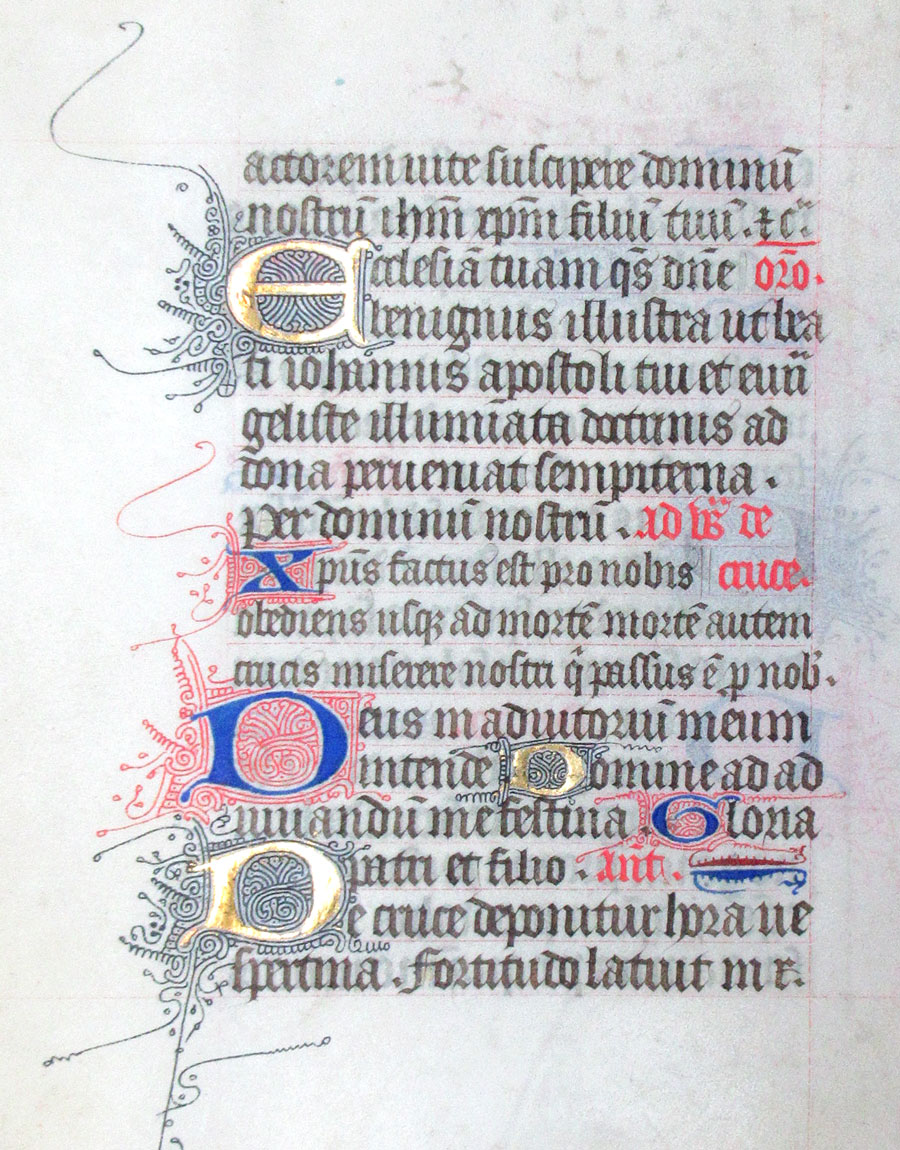 actorem uite suscipere dominū
nostrū ihm̄ xpm̄ filiū tuū . ⁊c̄
Ecclesiā tuam qs̄ dn̄e or̄o.
benignus illustra ut bea
ti iohannis apostoli tui et euū
geliste illumiata doctrinis ad
dona perueniat sempiterna .
Per dominū nostrū . ad vs̄ de
Xpūs factus est pro nobis cruce.
obediens usqꝫ ad mortē mortē autem
crucis miserere nostri qͥ passus ē ꝓ nob̾.
Deus in adiutoriū meum
intende Domine ad ad
iuuandū me festina . Gloria
patri et filio . ant̄.
De cruce deponitur hora ue
spertina . Fortitudo latuit in r̄.